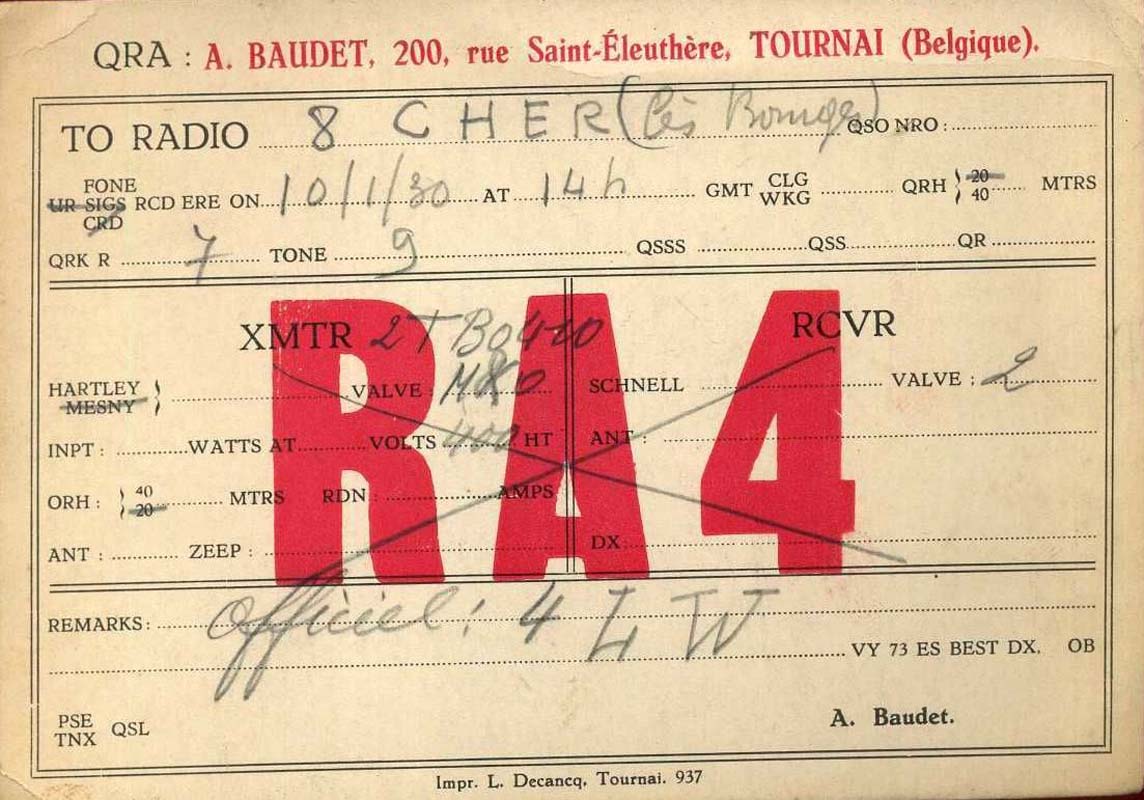 QRA : A. BAUDET, 200, rue Saint-Éleuthère, TOURNAI (Belgique).
TO RADIO 8 CHER (Lès Bourges) QSO NRO :
FONE
UR SIGS RCD ERE ON 10/1/30 AT 14 h GMT CLG WKG QRH 20 40 MTRS
CRD
QRK R 7 TONE 9 QSSS QSS QR
RA4
XMTR 2 TB0410 RCVR
HARTLEY MESNY VALVE : SCHNELL VALVE : 2
INPT : WATTS AT VOLTS 400 HT ANT :
ORH : 40 20 MTRS RDN : AMPS
ANT : ZEEP : DX
REMARKS: Officiel : 4 L W
VY 73 ES BEST DX. OB
PSE TNX QSL A. Baudet.
Impr. L. Decancq, Tournai. 937